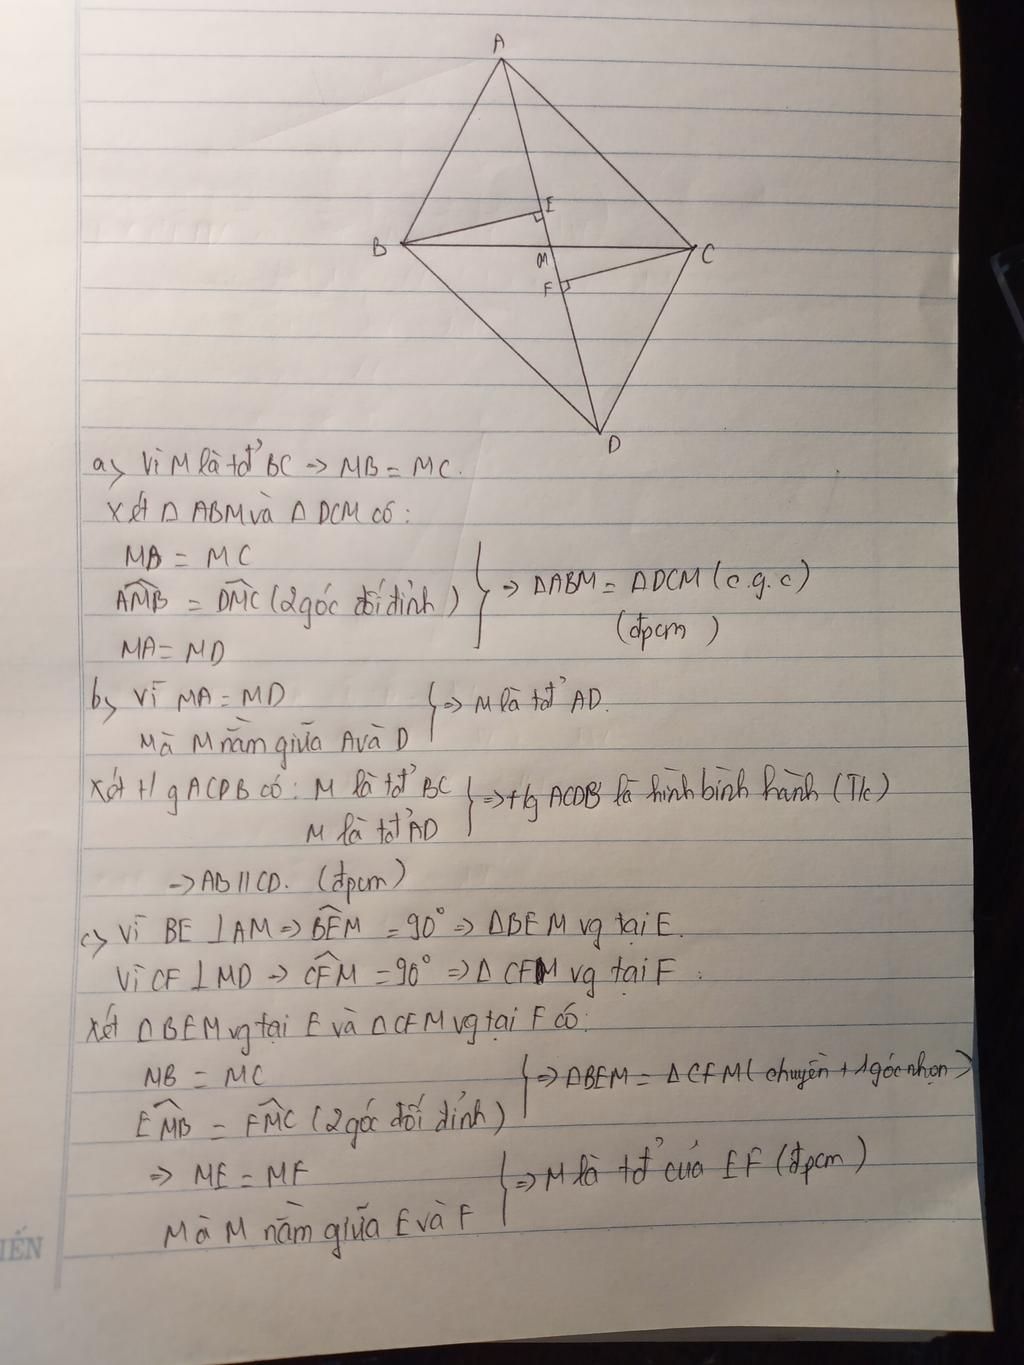 A
E
B
M
C
F
D
a) Vì M là tđ' BC => MB = MC.
Xét Δ ABM và Δ DCM có:
MB = MC
AMB = DMC (2 góc đối đỉnh)
=> ΔABM = ΔDCM (c.g.c)
(đpcm)
MA = MD
b) Vì MA = MD
=> M là tđ' AD.
Mà M nằm giữa A và D
Xét t/g ACDB có: M là tđ' BC
=> t/g ACDB là hình bình hành (T/c)
M là tđ' AD
=> AB // CD. (đpcm)
c) Vì BE ⊥ AM => BEM = 90° => ΔBEM vg tại E.
Vì CF ⊥ MD => CFM = 90° => Δ CFM vg tại F.
Xét ΔBEM vg tại E và ΔCFM vg tại F có:
MB = MC
=> ΔBEM = ΔCFM (chuyền + 1 góc nhọn)
EMB = FMC (2 góc đối đỉnh)
=> ME = MF
=> M là tđ' của EF (đpcm)
Mà M nằm giữa E và F
IẾN